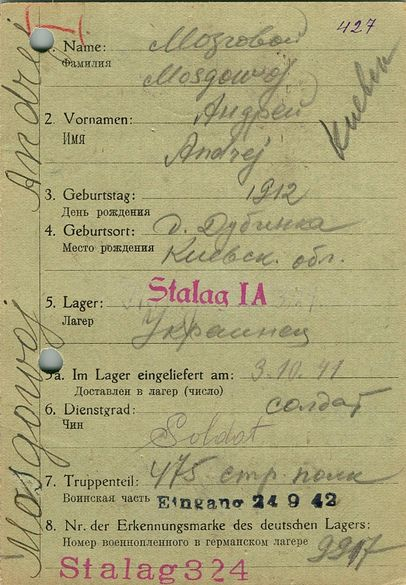 427
1. Name: Мозговой
Фамилия
Mosgowoj
2. Vornamen: Андрей
Имя
Andrej
Киевск
3. Geburtstag: 1912
День рождения
4. Geburtsort: д. Дубинка
Место рождения Киевск. обл.
Stalag IA
5. Lager:
Лагер Украинец
5a. Im Lager eingeliefert am: 3.10.41
Доставлен в лагер (число)
6. Dienstgrad: солдат
Чин
Soldat
7. Truppenteil: 475 стр. полк
Воинская часть Eingang 24 9 42
8. Nr. der Erkennungsmarke des deutschen Lagers:
Номер военнопленного в германском лагере 9917
Stalag 324
Mosgowoj Andrej